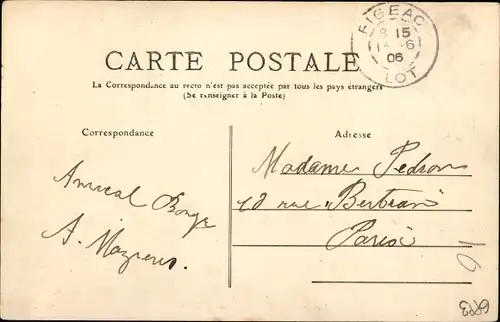 FIGEAC
8 15
14 -6
06
LOT
CARTE POSTALE
La Correspondance au recto n'est pas acceptée par tous les pays étrangers
(Se renseigner à la Poste)
Correspondance
Adresse
Madame Pedron
rue Bertrand
Paris
Amical
A. Mazieres
16